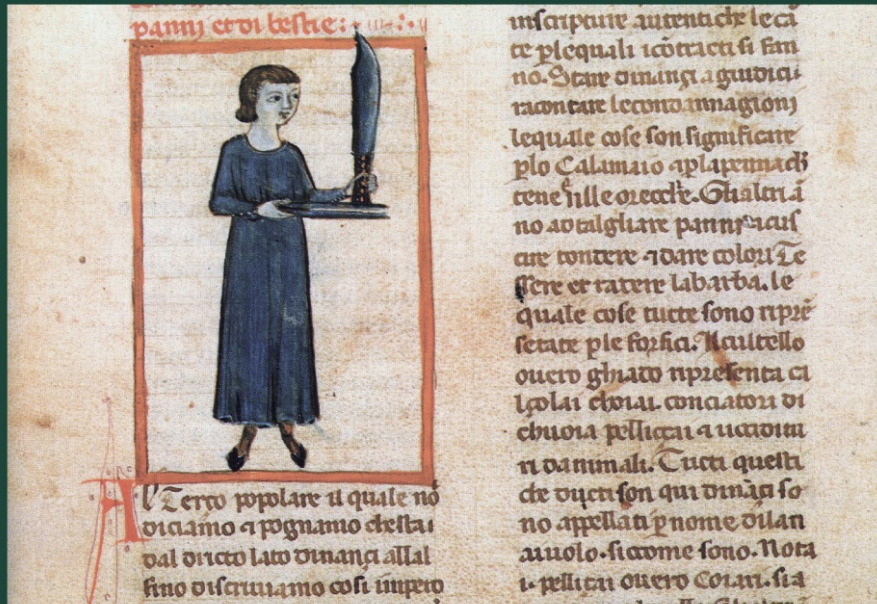 panni et di bestie:
Al Terço popolare il quale nō
diciamo ⁊ pognamo che stia
dal diricto lato dinançi allal
fino discriuiamo cosi impero
inscripture autentiche le ca
te p̱ lequali i cōtracti si fan
no. Stare dinançi a giudici ⁊
racontare le condannagioni
lequale cose son significate
p̱lo Calamaio ⁊ p̱ la penna ch̄
tene nille orecche. Gli altri ā
no ad talgliare panni ⁊ a cus
cire tondere ⁊ dare colori Te
ssere et radere la barba. le
quale cose tutte sono ripre
setate p̱ le forfici. Il cultello
ouero ghiado ripresenta ca
lçolai choiai. conciatori di
chuoia pelliçai ⁊ uccidito
ri danimali. Tucti questi
che ducti son qui dināçi so
no appellati p̱ nome di lan
aiuolo. siccome sono. Nota
i. pelliçai ouero Coiari. sia